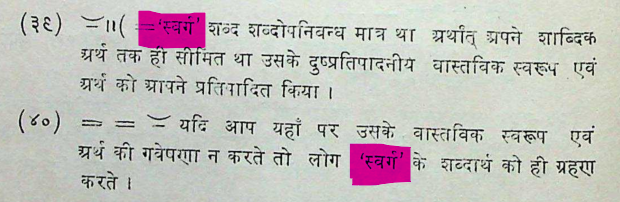 (३९) ⏑।।( = 'स्वर्ग' शब्द शब्दोपनिबन्ध मात्र था अर्थात् अपने शाब्दिक
अर्थ तक ही सीमित था उसके दुष्प्रतिपादनीय वास्तविक स्वरूप एवं
अर्थ को आपने प्रतिपादित किया ।
(४०) = = ⏑ यदि आप यहाँ पर उसके वास्तविक स्वरूप एवं
अर्थ की गवेषणा न करते तो लोग 'स्वर्ग' के शब्दार्थ को ही ग्रहण
करते ।